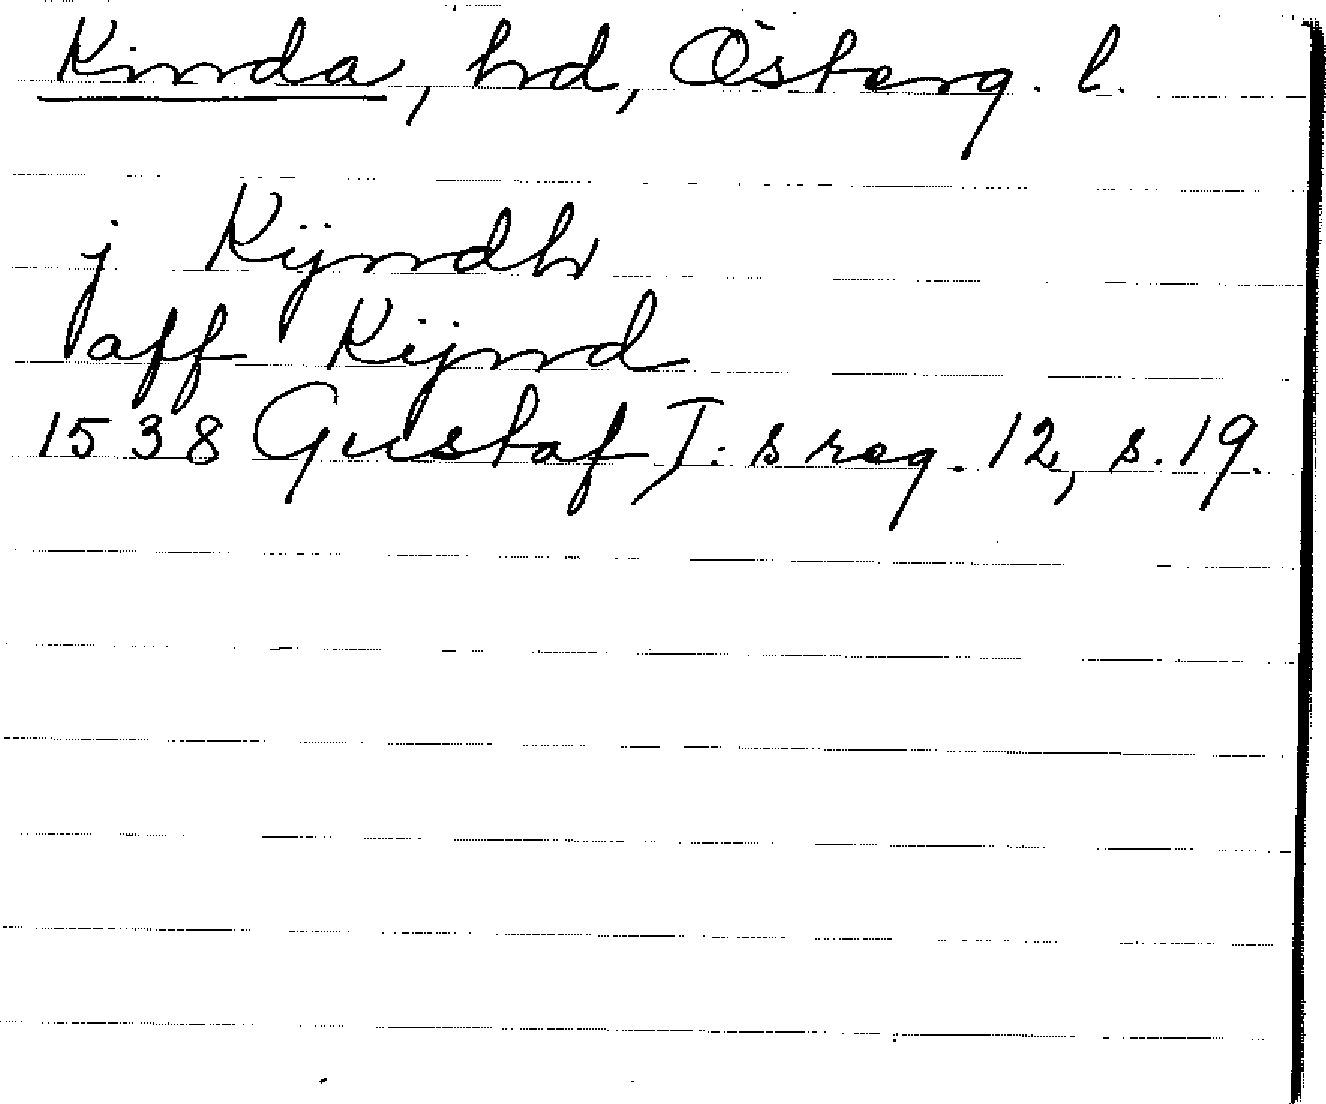 Kinda, hd, Österg. l.
j Kijndh
aff Kijnd
1538 Gustaf I:s reg. 12, s. 19.